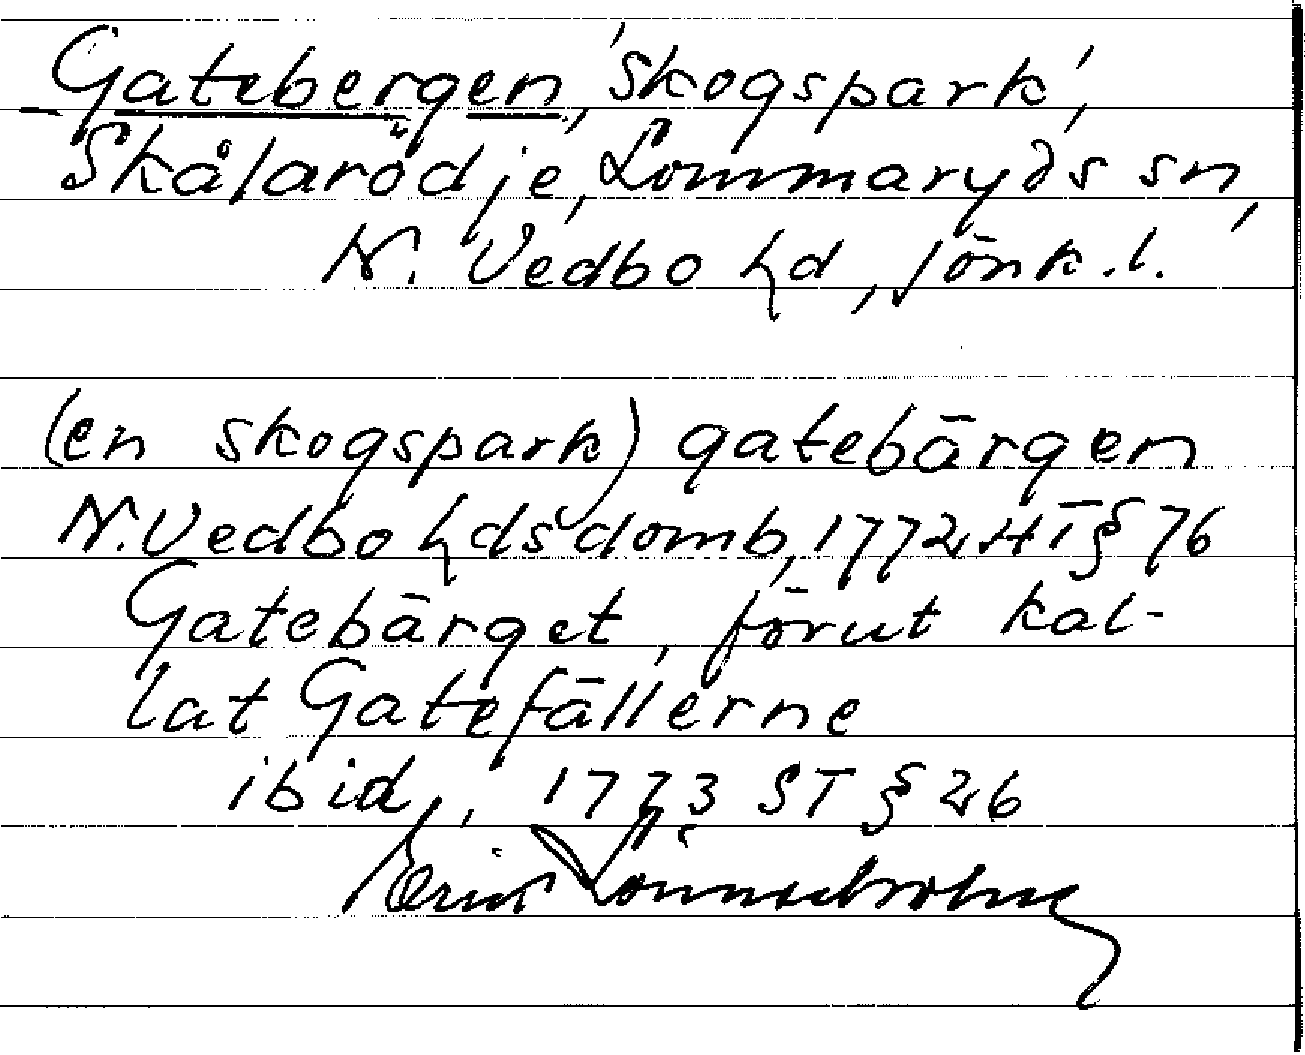 Gatebergen, 'skogspark',
Skålarödje, Lommaryds sn,
N. Vedbo hd, Jönk.l.
(en skogspark) gatebärgen
N. Vedbo hds domb, 1772 HT § 76
Gatebärget, förut kal-
lat Gatefällerne
ibid., 1773 ST § 26
Erik